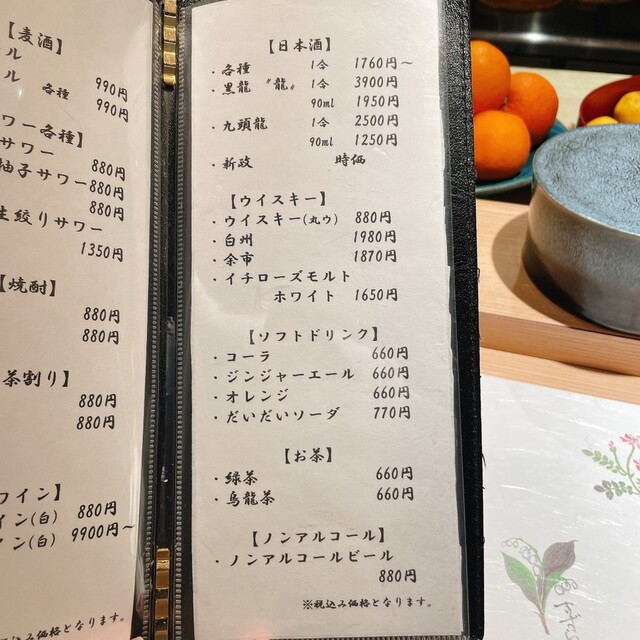 【麦酒】
ル
990円
ル 各種
990円
ワー各種】
サワー 880円
柚子サワー 880円
880円
生絞りサワー
1350円
【焼酎】
880円
880円
茶割り】
880円
880円
ワイン】
イン(白) 880円
ン(白) 9900円～
税込み価格となります。
【日本酒】
・各種 1合 1760円～
・黒龍 〝龍〟 1合 3900円
90ml 1950円
・九頭龍 1合 2500円
90ml 1250円
・新政 時価
【ウイスキー】
・ウイスキー(丸ウ) 880円
・白州 1980円
・余市 1870円
・イチローズモルト
ホワイト 1650円
【ソフトドリンク】
・コーラ 660円
・ジンジャーエール 660円
・オレンジ 660円
・だいだいソーダ 770円
【お茶】
・緑茶 660円
・烏龍茶 660円
【ノンアルコール】
・ノンアルコールビール
880円
※税込み価格となります。